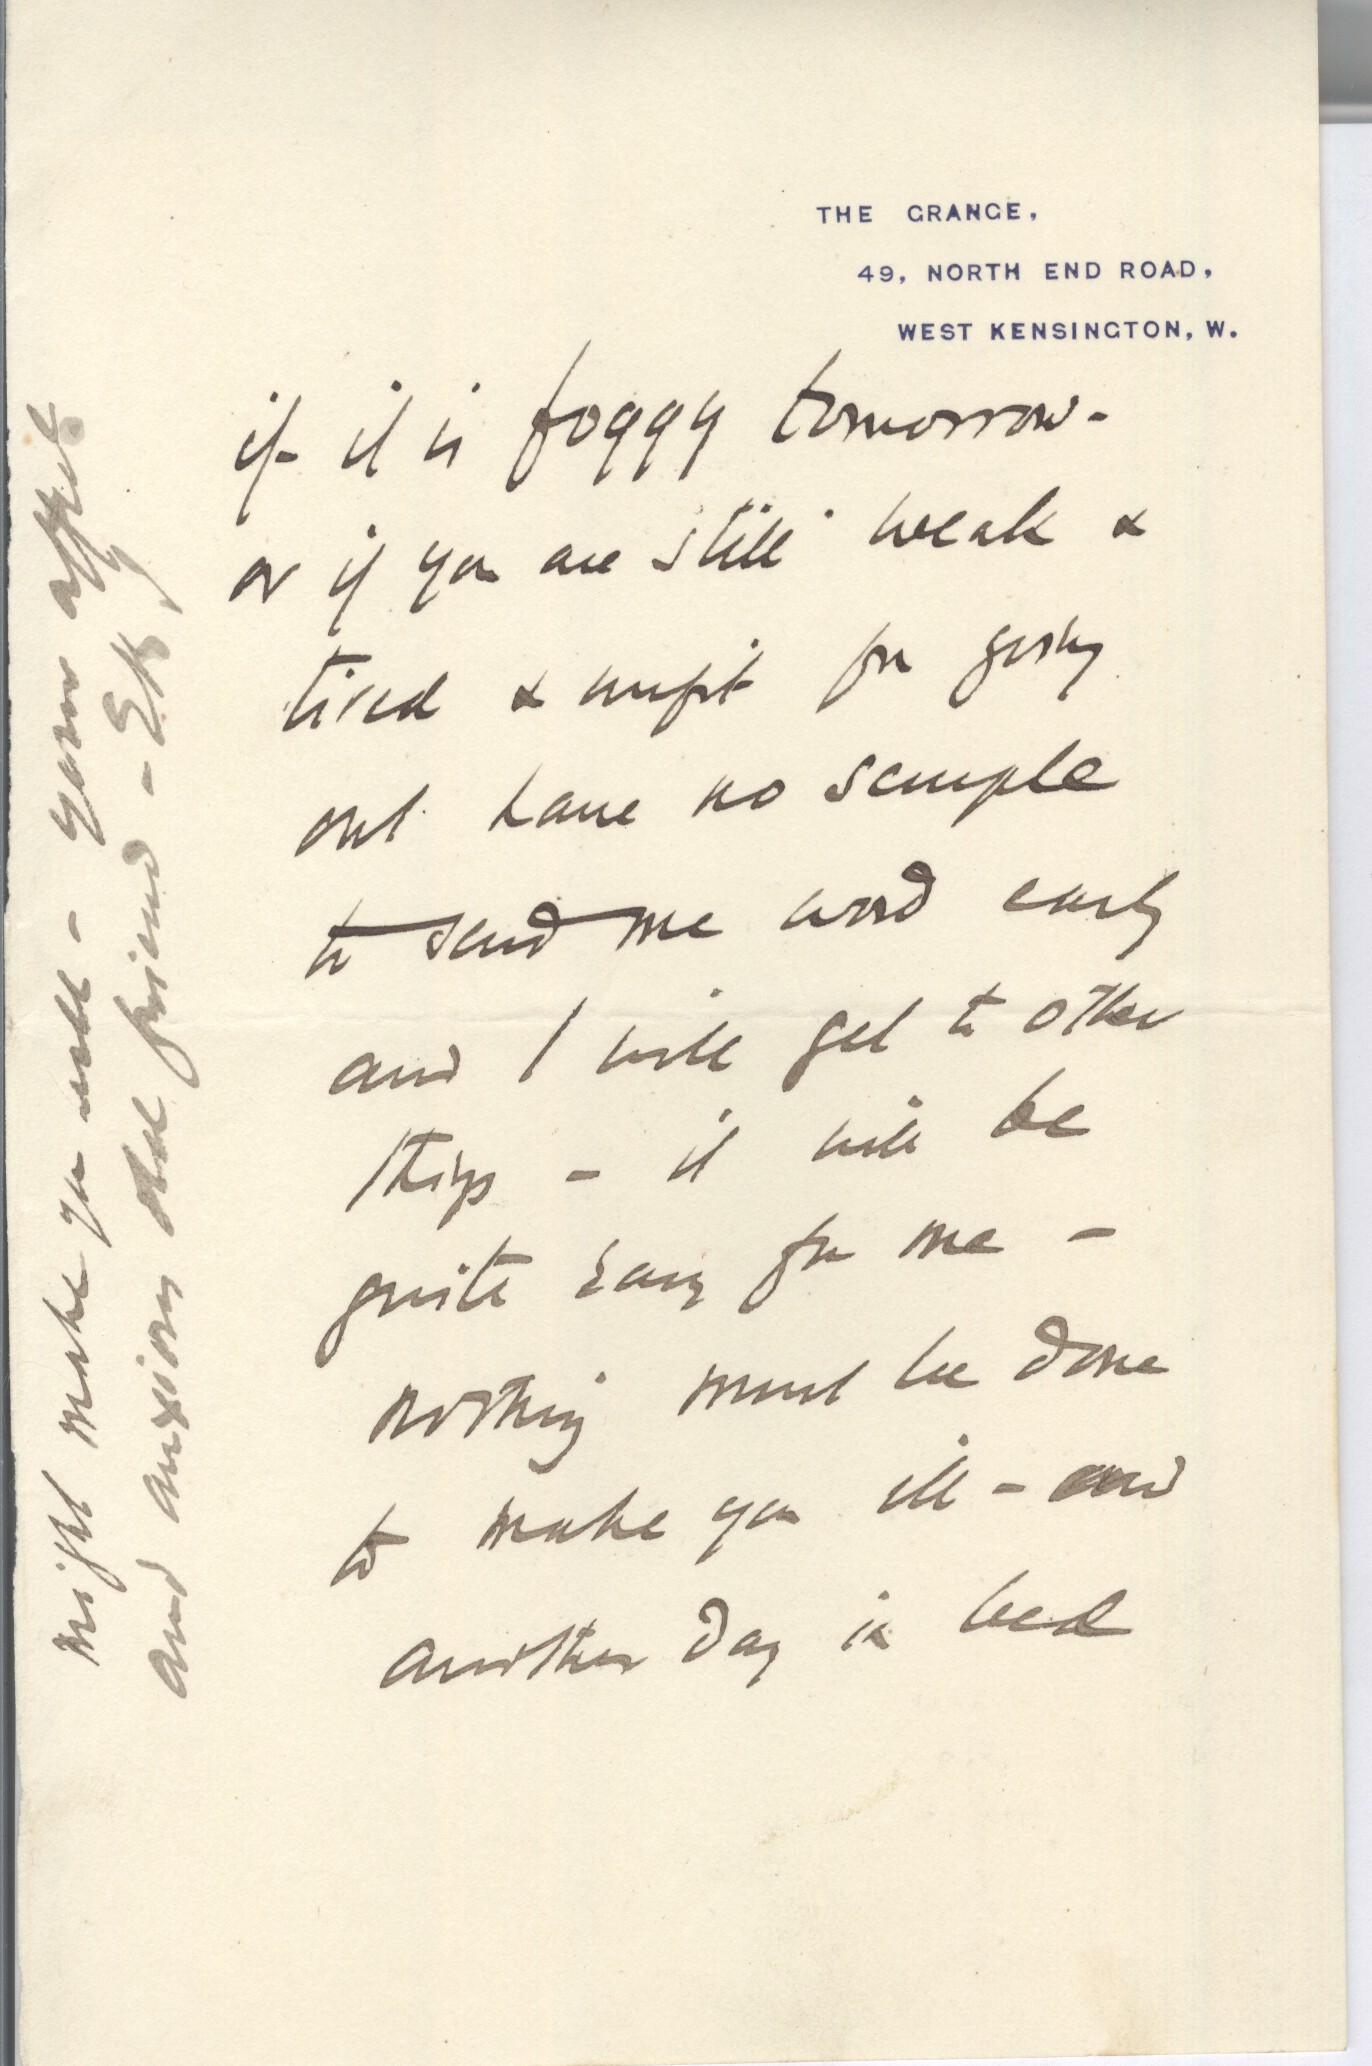 THE GRANGE,
49, NORTH END ROAD,
WEST KENSINGTON, W.
if it is foggy tomorrow -
or if you are still weak &
tired & unfit for going
out have no scruple
to send me word early
and I will get to other
things - it will be
quite easy for me -
nothing must be done
to make you ill - and
another day in bed
might make you well - your affect
and anxious old friend -